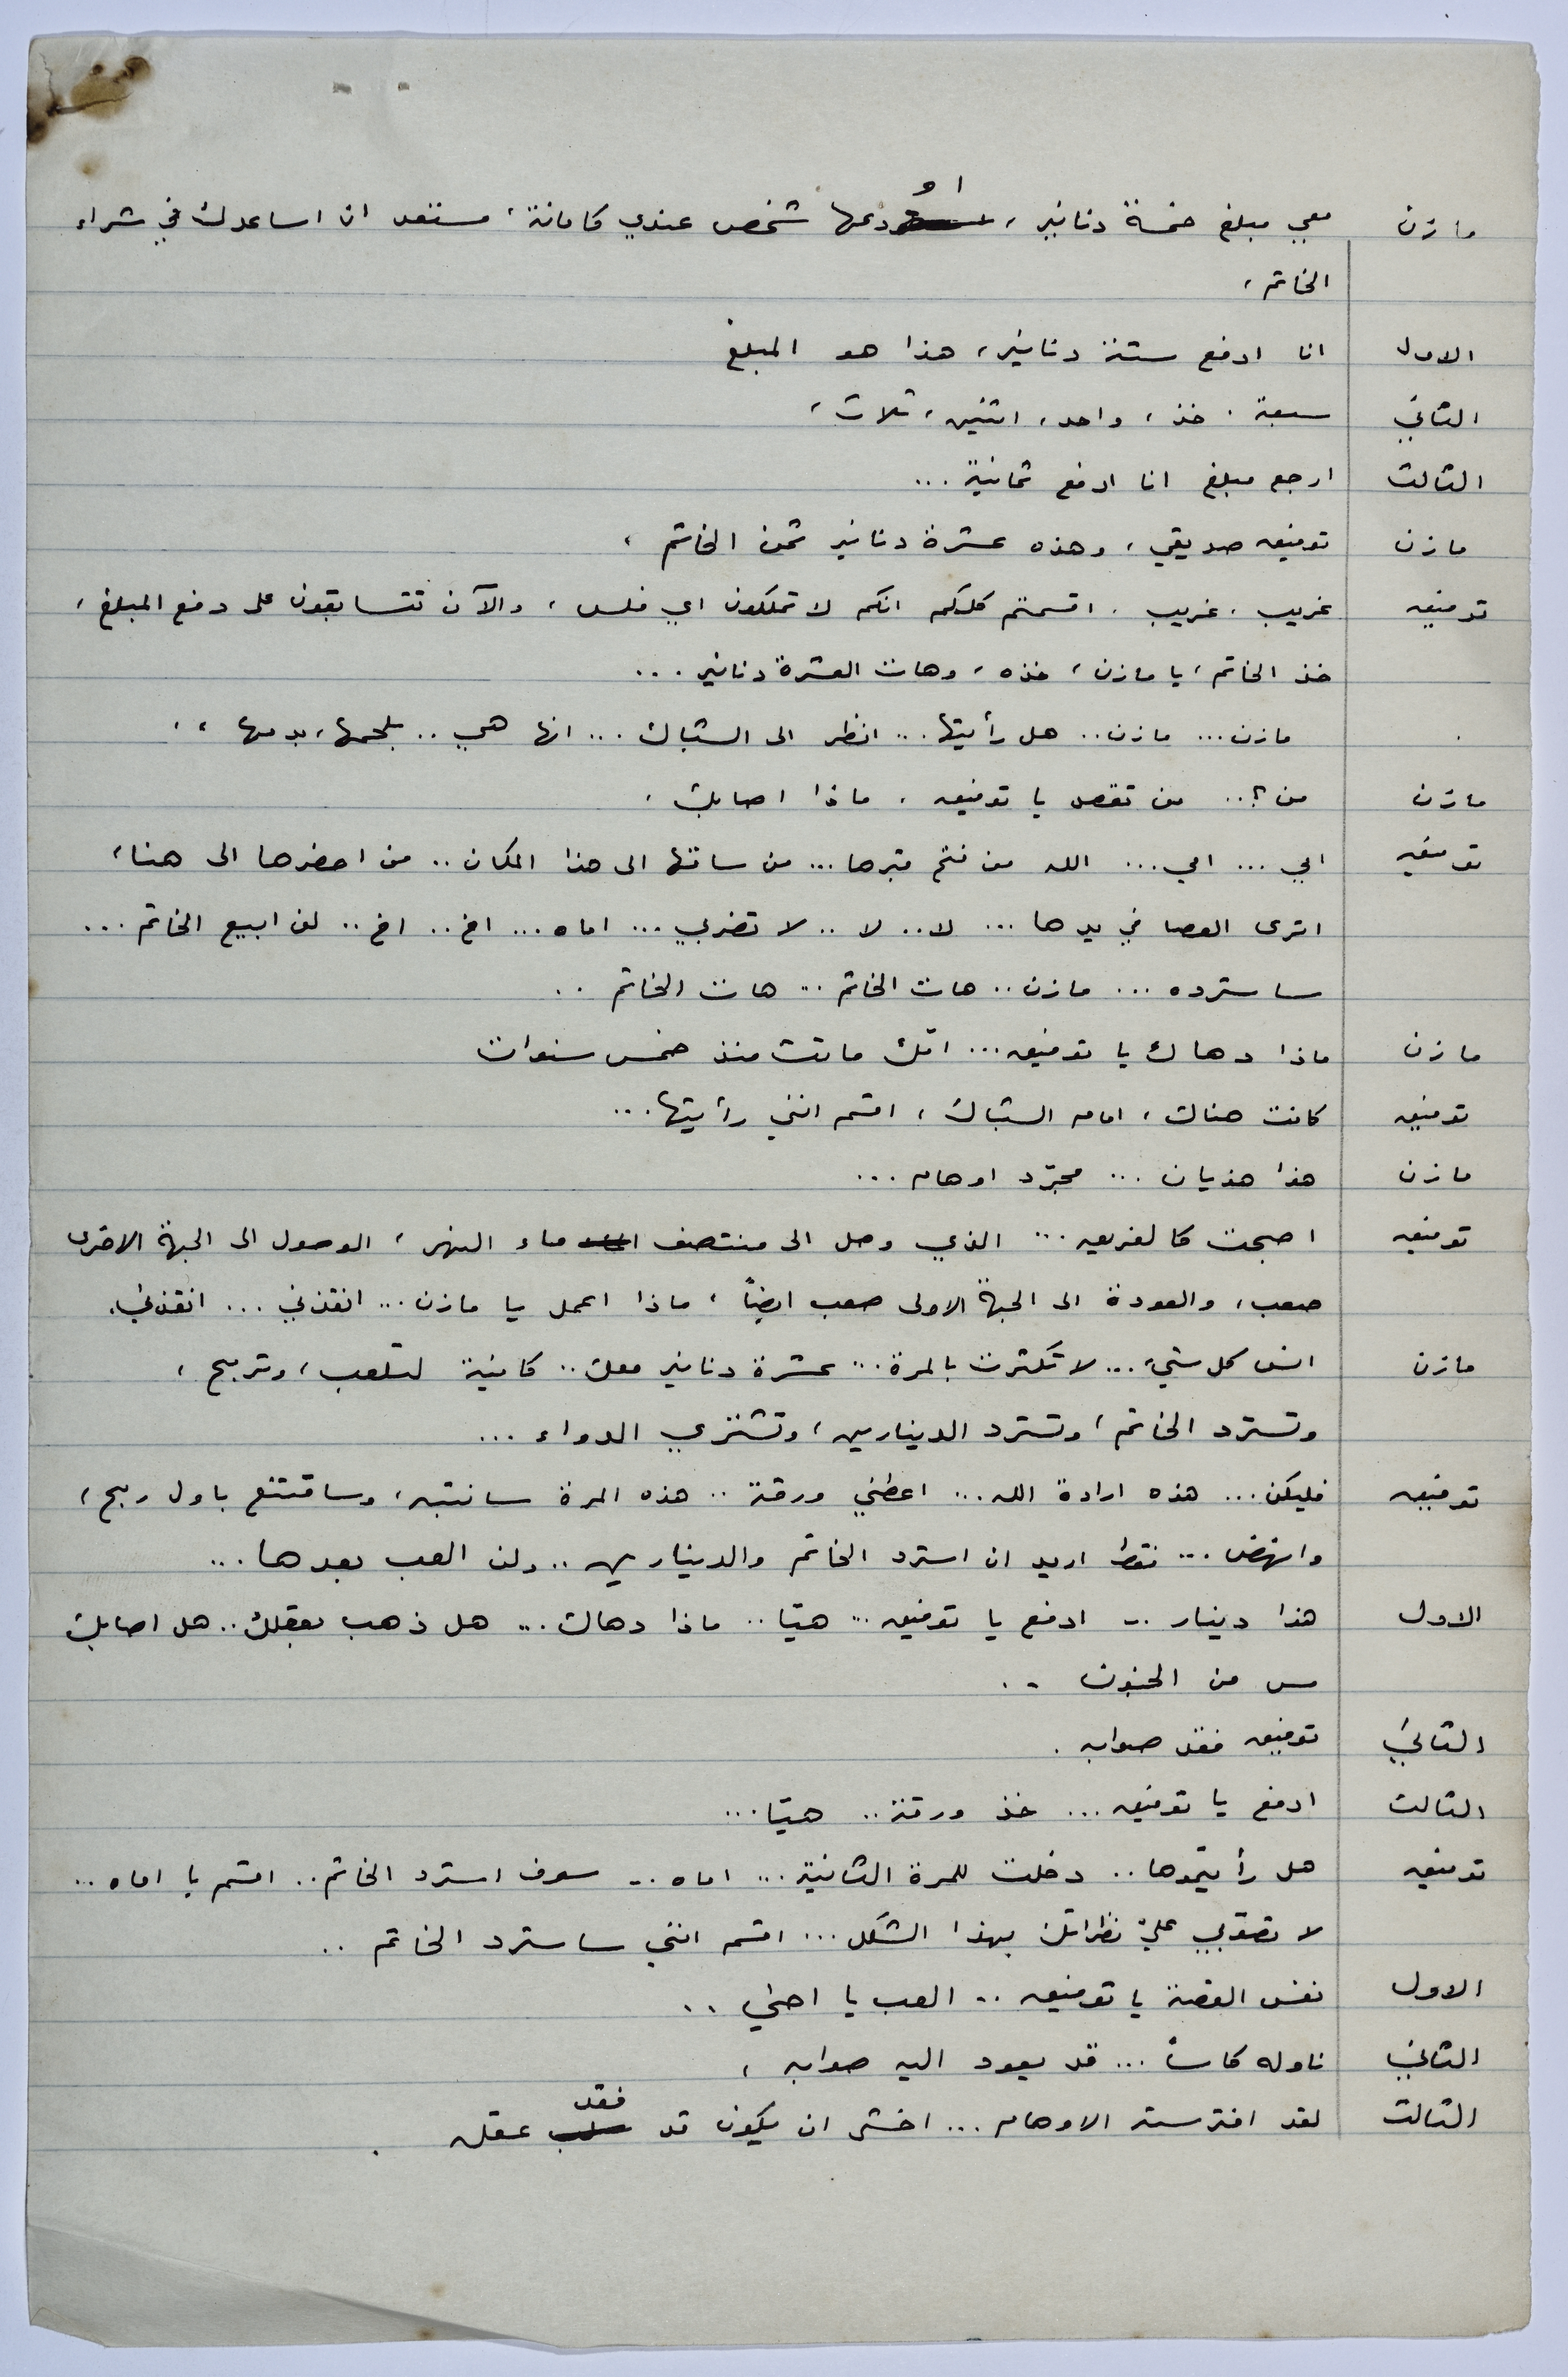 مازن معي مبلغ خمسة دنانير، اودعها شخص عندي كامانة، مستعد ان اساعدك في شراء
الخاتم،
الاول انا ادفع ستة دنانير، هذا هو المبلغ
الثاني سبعة. خذ، واحد، اثنين، ثلاث،
الثالث ارجع مبلغ انا ادفع ثمانية...
مازن توفيق صديقي، وهذه عشرة دنانير ثمن الخاتم،
توفيق غريب. غريب. اقسمتم كلكم انكم لا تملكون اي فلس، والآن تتسابقون على دفع المبلغ،
خذ الخاتم، يا مازن، خذه، وهات العشرة دنانير...
مازن... مازن.. هل رأيتها... انظر الى الشباك... انها هي.. بلحمها، بدمها،،
مازن من؟.. من تقصد يا توفيق. ماذا اصابك.
توفيق امي... امي... الله من فتح قبرها... من ساقها الى هذا المكان.. من احضرها الى هنا،
اترى العصا في يدها... لا.. لا.. لا تضربي... اماه... اخ.. اخ.. لن ابيع الخاتم...
ساسترده... مازن.. هات الخاتم... هات الخاتم..
مازن ماذا دهاك يا توفيق... امّك ماتت منذ خمس سنوات
توفيق كانت هناك، امام الشباك، اقسم انني رأيتها...
مازن هذا هذيان... مجرّد اوهام...
توفيق اصبحت كالغريق... الذي وصل الى منتصف ماء النهر، الوصول الى الجهة الاخرى
صعب، والعودة الى الجهة الاولى صعب ايضاً، ماذا اعمل يا مازن... انقذني... انقذني.
مازن انس كل شيء... لا تكترث بالمرة... عشرة دنانير معك.. كافية لتلعب، وتربح،
وتسترد الخاتم، وتسترد الدينارين، وتشتري الدواء...
توفيق فليكن... هذه ارادة الله... اعطني ورقة.. هذه المرة سانتبه، وساقتنع باول ربح،
وانهض... فقط اريد ان استرد الخاتم والدينارين.. ولن العب بعدها...
الاول هذا دينار.. ادفع يا توفيق... هيّا.. ماذا دهاك... هل ذهب بعقلك.. هل اصابك
مس من الجنون..
الثاني توفيق فقد صوابه.
الثالث ادفع يا توفيق... خذ ورقة.. هيّا...
توفيق هل رأيتموها.. دخلت للمرة الثانية... اماه.. سوف استرد الخاتم.. اقسم يا اماه..
لا تصوّبي عليّ نظراتك بهذا الشكل... اقسم انني ساسترد الخاتم..
الاول نفس القصة يا توفيق.. العب يا اخي..
الثاني ناوله كاساً... قد يعود اليه صوابه،
الثالث لقد افترسته الاوهام... اخشى ان يكون قد فقد عقله.